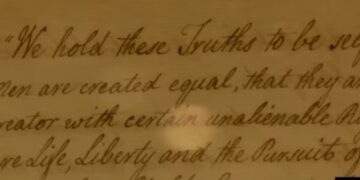 "We hold these Truths to be sel
men are created equal, that they a
reator with certain unalienable Ri
re Life, Liberty and the Pursuit o